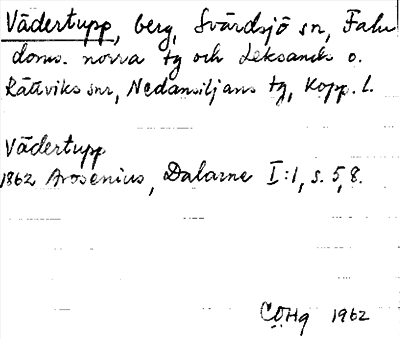 Vädertupp, berg, Svärdsjö sn, Falu
doms. norra tg och Leksands o.
Rättviks snr, Nedansiljans tg, Kopp. l.
Vädertupp
1862 Arosenius, Dalarne I:1, s. 5, 8.
COHg 1962